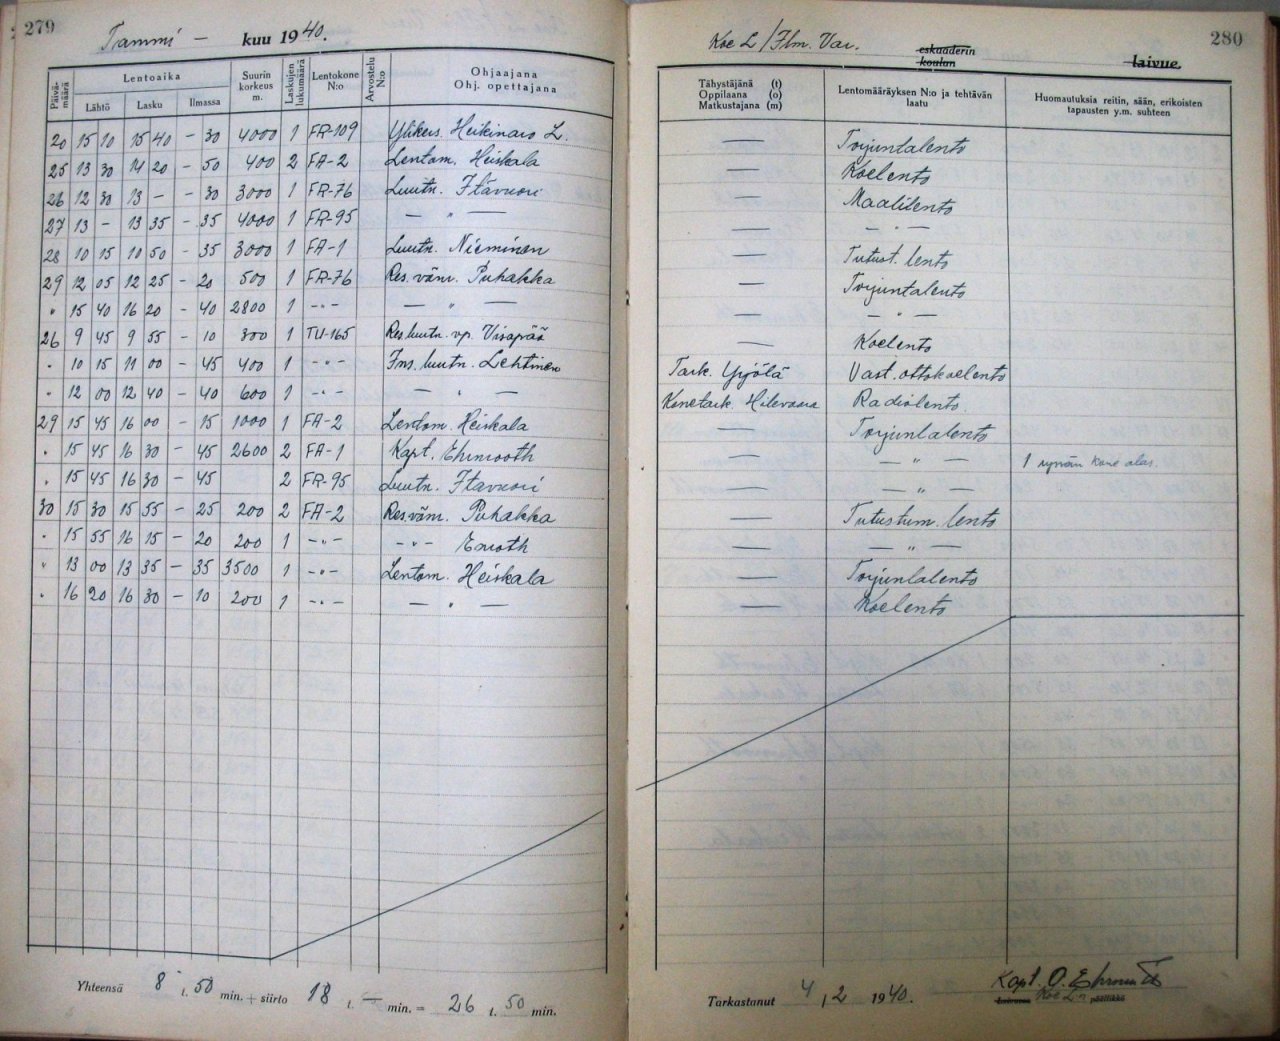 279
Tammi — kuu 1940.
Päivämäärä
Lentoaika
Lähtö Lasku Ilmassa
Suurin korkeus m.
Laskujen lukumäärä
Lentokone N:o
Arvostelu N:o
Ohjaajana
Ohj. opettajana
20 15 10 15 40 – 30 4000 1 FR-109 Ylikers. Heikinaro L.
25 13 30 14 20 – 50 400 2 FA-2 Lentom. Heiskala
26 12 30 13 – – 30 3000 1 FR-76 Luutn. Itävuori
27 13 – 13 35 – 35 4000 1 FR-95 — " —
28 10 15 10 50 – 35 3000 1 FA-1 Luutn. Nieminen
29 12 05 12 25 – 20 500 1 FR-76 Res. vänr. Puhakka
" 15 40 16 20 – 40 2800 1 – " – — " —
26 9 45 9 55 – 10 300 1 TU-165 Res. luutn. vp. Visapää
" 10 15 11 00 – 45 400 1 – " – Ins. luutn. Lehtinen
" 12 00 12 40 – 40 600 1 – " – — " —
29 15 45 16 00 – 15 1000 1 FA-2 Lentom. Heiskala
" 15 45 16 30 – 45 2600 2 FA-1 Kapt. Ehrnrooth
" 15 45 16 30 – 45 2 FR-95 Luutn. Itävuori
30 15 30 15 55 – 25 200 2 FA-2 Res. vänr. Puhakka
" 15 55 16 15 – 20 200 1 – " – – " – Enroth
" 13 00 13 35 – 35 3500 1 – " – Lentom. Heiskala
" 16 20 16 30 – 10 200 1 – " – — " —
Yhteensä 8 t. 50 min. + siirto 18 t. — min. = 26 t. 50 min.
Koe L/Flm. Var. eskaaderin koulun laivue.
280
Tähystäjänä (t)
Oppilaana (o)
Matkustajana (m)
Lentomääräyksen N:o ja tehtävän laatu
Huomautuksia reitin, sään, erikoisten tapausten y.m. suhteen
— Torjuntalento
— Koelento
— Maalilento
— — " —
— Tutust. lento
— Torjuntalento
— — " —
— Koelento
Tark. Yrjölä Vast.ottokoelento
Konetark. Hilevaara Radiolento.
— Torjuntalento
— — " — 1 ryssän kone alas.
— — " —
— Tutustum. lento
— — " —
— Torjuntalento
— Koelento
Tarkastanut 4 / 2 1940. Kapt. O. Ehrnrooth
laivueen Koe L:n päällikkö